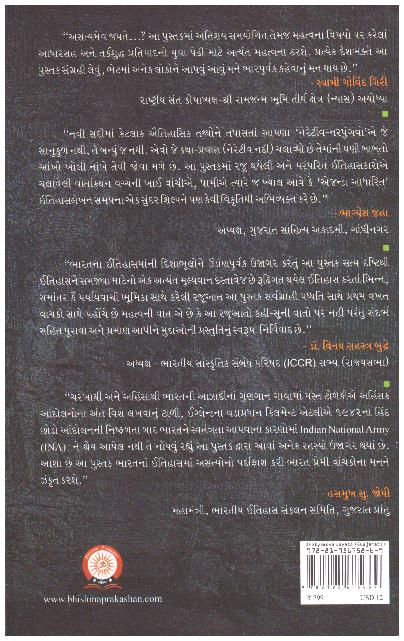 “અસત્યમેવ જયતે...? આ પુસ્તકમાં અતિશય સમયોચિત તેમજ મહત્વના વિષયો પર કરેલાં
આધારસહ અને તર્કશુદ્ધ પ્રતિપાદનો યુવા પેઢી માટે અત્યંત મહત્વના ઠરશે. પ્રત્યેક દેશભક્તે આ
પુસ્તક સંગ્રહી લેવું, ભેટમાં અનેક લોકોને આપવું આવું મને ભારપૂર્વક કહેવાનું મન થાય છે.”
- સ્વામી ગોવિંદ ગિરી
રાષ્ટ્રીય સંત કોષાધ્યક્ષ-શ્રી રામજન્મ ભૂમિ તીર્થ ક્ષેત્ર (ન્યાસ) અયોધ્યા
“નવી સદીમાં કેટલાક ઐતિહાસિક તથ્યોને તપાસતાં આપણા ‘નેરેટીવ-નરપુંગવો’એ જે
સાનુકૂળ નથી, તે બન્યું જ નથી. એવો જે કથા-પ્રવાણ (નેરેટીવ નદી) ચલાવ્યો છે તેમાંની ઘણી બાબતો
આંખો ખોલી નાંખે તેવી જોવા મળે છે. આ પુસ્તકમાં રજૂ થયેલી અને પરંપરિત ઈતિહાસકારોએ
ચલાવેલી વાર્તાકથન વચ્ચેની ખાઈ વાંચીએ, પામીએ ત્યારે જ ખ્યાલ આવે કે ‘એજન્ડા આધારિત’
ઈતિહાસલેખન સમયના એક સુંદર શિલ્પને પણ કેવી વિકૃતિથી અભિવ્યક્ત કરે છે.”
- ભાગ્યેશ જહા
અધ્યક્ષ, ગુજરાત સાહિત્ય અકાદમી, ગાંધીનગર
“ભારતના ઈતિહાસમાંની દિશાભૂલીને ઊંડાણપૂર્વક ઉજાગર કરતું આ પુસ્તક સત્ય દૃષ્ટિથી
ઈતિહાસને સમજવા માટેનો એક અત્યંત મૂલ્યવાન દસ્તાવેજ છે રૂઢિગત થયેલ ઈતિહાસ કરતાં ભિન્ન,
સમાંતર કે પર્યાયવાચી ભૂમિકા સાથે કરેલી રજૂઆત આ પુસ્તક સર્વગ્રાહી પધ્ધતિ સાથે પ્રથમ વખત
વાચકો સાથે પહોંચે છે મહત્વની વાત એ છે કે આ રજૂઆતો કહી-સૂની વાતો પર નહી પરંતુ સંદર્ભ
સહિત પુરાવા અને પ્રમાણ આપીને મુદ્દાઓની પ્રસ્તુતિનું સ્વરૂપ નિર્વિવાદ છે.”
- ડૉ. વિનય સહસ્ત્ર બુદ્ધે
અધ્યક્ષ - ભારતીય સાંસ્કૃતિક સંબંધ પરિષદ (ICCR) સભ્ય (રાજ્યસભા)
“ચરખાથી અને અહિંસાથી ભારતની આઝાદીનાં ગુણગાન ગાવામાં મસ્ત ટોળકીએ અહિંસક
આંદોલનોના અંત વિશે લખવાનું ટાળી, ઈંગ્લેન્ડના વડાપ્રધાન ક્લિમેન્ટ એટલીએ ૧૯૪૨ના હિંદ
છોડો આંદોલનની નિષ્ફળતા બાદ ભારતને સ્વતંત્રતા આપવાના કારણોમાં Indian National Army
(INA) ને શ્રેય આપેલ નથી તે નોંધવું રહ્યું આ પુસ્તક દ્વારા આવાં અનેક રહસ્યો ઉજાગર થયાં છે.
આશા છે આ પુસ્તક ભારતનાં ઈતિહાસમાં અસત્યોનો પર્દાફાશ કરી ભારત પ્રેમી વાંચકોના મનને
ઝંકૃત કરશે.”
હસમુખ સુ. જોષી
મહામંત્રી, ભારતીય ઈતિહાસ સંકલન સમિતિ, ગુજરાત પ્રાંત
www.bhishmaprakashan.com
₹ 799
USD 12